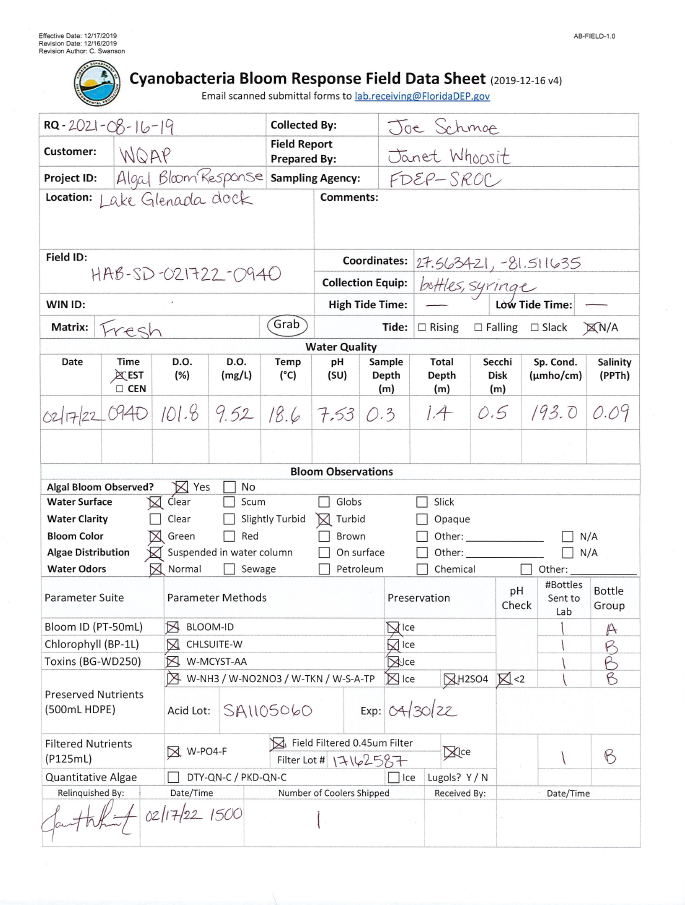 Effective Date: 12/17/2019
Revision Date: 12/16/2019
Revision Author: C. Swanson
AB-FIELD-1.0
Cyanobacteria Bloom Response Field Data Sheet (2019-12-16 v4)
Email scanned submittal forms to lab.receiving@FloridaDEP.gov
RQ - 2021-08-16-19 Collected By: Joe Schmoe
Customer: WQAP Field Report Prepared By: Janet Whoosit
Project ID: Algal Bloom Response Sampling Agency: FDEP-SROC
Location: Lake Glenada dock Comments:
Field ID: HAB-SD-021722-0940 Coordinates: 27.563421, -81.511635
Collection Equip: bottles, syringe
WIN ID: High Tide Time: — Low Tide Time: —
Matrix: Fresh Grab Tide: ☐ Rising ☐ Falling ☐ Slack ☒ N/A
Water Quality
Date Time D.O. D.O. Temp pH Sample Total Secchi Sp. Cond. Salinity
☒ EST (%) (mg/L) (°C) (SU) Depth Depth Disk (µmho/cm) (PPTh)
☐ CEN (m) (m) (m)
02/17/22 0940 101.8 9.52 18.6 7.53 0.3 1.4 0.5 193.0 0.09
Bloom Observations
Algal Bloom Observed? ☒ Yes ☐ No
Water Surface ☒ Clear ☐ Scum ☐ Globs ☐ Slick
Water Clarity ☐ Clear ☐ Slightly Turbid ☒ Turbid ☐ Opaque
Bloom Color ☒ Green ☐ Red ☐ Brown ☐ Other: ____ ☐ N/A
Algae Distribution ☒ Suspended in water column ☐ On surface ☐ Other: ____ ☐ N/A
Water Odors ☒ Normal ☐ Sewage ☐ Petroleum ☐ Chemical ☐ Other: ____
Parameter Suite Parameter Methods Preservation pH Check #Bottles Sent to Lab Bottle Group
Bloom ID (PT-50mL) ☒ BLOOM-ID ☒ Ice 1 A
Chlorophyll (BP-1L) ☒ CHLSUITE-W ☒ Ice 1 B
Toxins (BG-WD250) ☒ W-MCYST-AA ☒ Ice 1 B
☒ W-NH3 / W-NO2NO3 / W-TKN / W-S-A-TP ☒ Ice ☒ H2SO4 ☒ <2 1 B
Preserved Nutrients
(500mL HDPE) Acid Lot: SA1105060 Exp: 04/30/22
Filtered Nutrients
(P125mL) ☒ W-PO4-F ☒ Field Filtered 0.45um Filter ☒ Ice 1 B
Filter Lot # 17162587
Quantitative Algae ☐ DTY-QN-C / PKD-QN-C ☐ Ice Lugols? Y / N
Relinquished By: Date/Time Number of Coolers Shipped Received By: Date/Time
02/17/22 1500 1